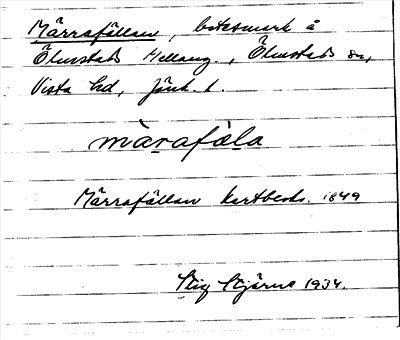 Märrafällan, betesmark å
Ölmstads Mellang., Ölmstads sn,
Vista hd, Jönk. l.
màrafäla
Märrafällan kartbeskr. 1849
Stig Stjärne 1934.